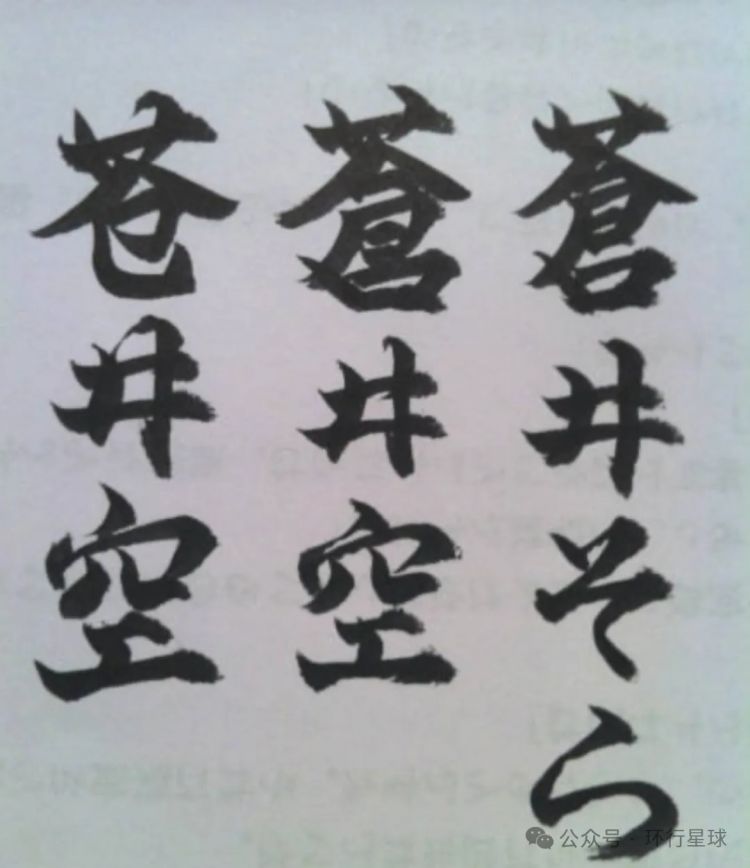 蒼井そら
蒼井空
苍井空
公众号·环行星球